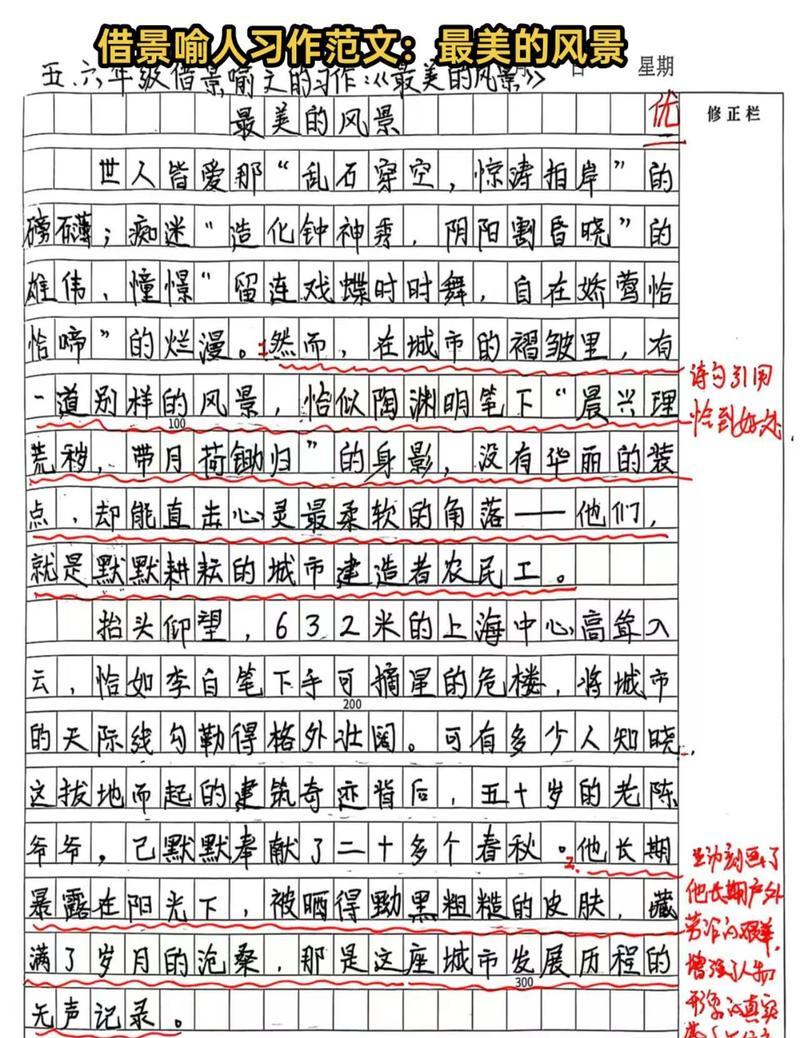 借景喻人习作范文：最美的风景
五.六年级借景喻文的习作:《最美的风景》
日 星期
最美的风景
优
修正栏
世人皆爱那“乱石穿空，惊涛拍岸”的
磅礴；痴迷“造化钟神秀，阴阳割昏晓”的
雄伟、憧憬“留连戏蝶时时舞，自在娇莺恰
恰啼”的烂漫。1然而，在城市的褶皱里，有
一道别样的风景，恰似陶渊明笔下“晨兴理
荒秽，带月荷锄归”的身影，没有华丽的装
点，却能直击心灵最柔软的角落——他们，
就是默默耕耘的城市建造者农民工。
诗句引用
恰到好处
100
抬头仰望，632米的上海中心高耸入
云，恰如李白笔下手可摘星的危楼，将城市
200
的天际线勾勒得格外壮阔。可有多少人知晓，
这拔地而起的建筑奇迹背后，五十岁的老陈
爷爷，已默默奉献了二十多个春秋。2.他长期
暴露在阳光下，被晒得黝黑粗糙的皮肤，藏
满了岁月的沧桑，那是这座城市发展历程的
300
无声记录。
生动刻画了
他长期户外
劳作的艰辛，
增强了人物
形象的真实